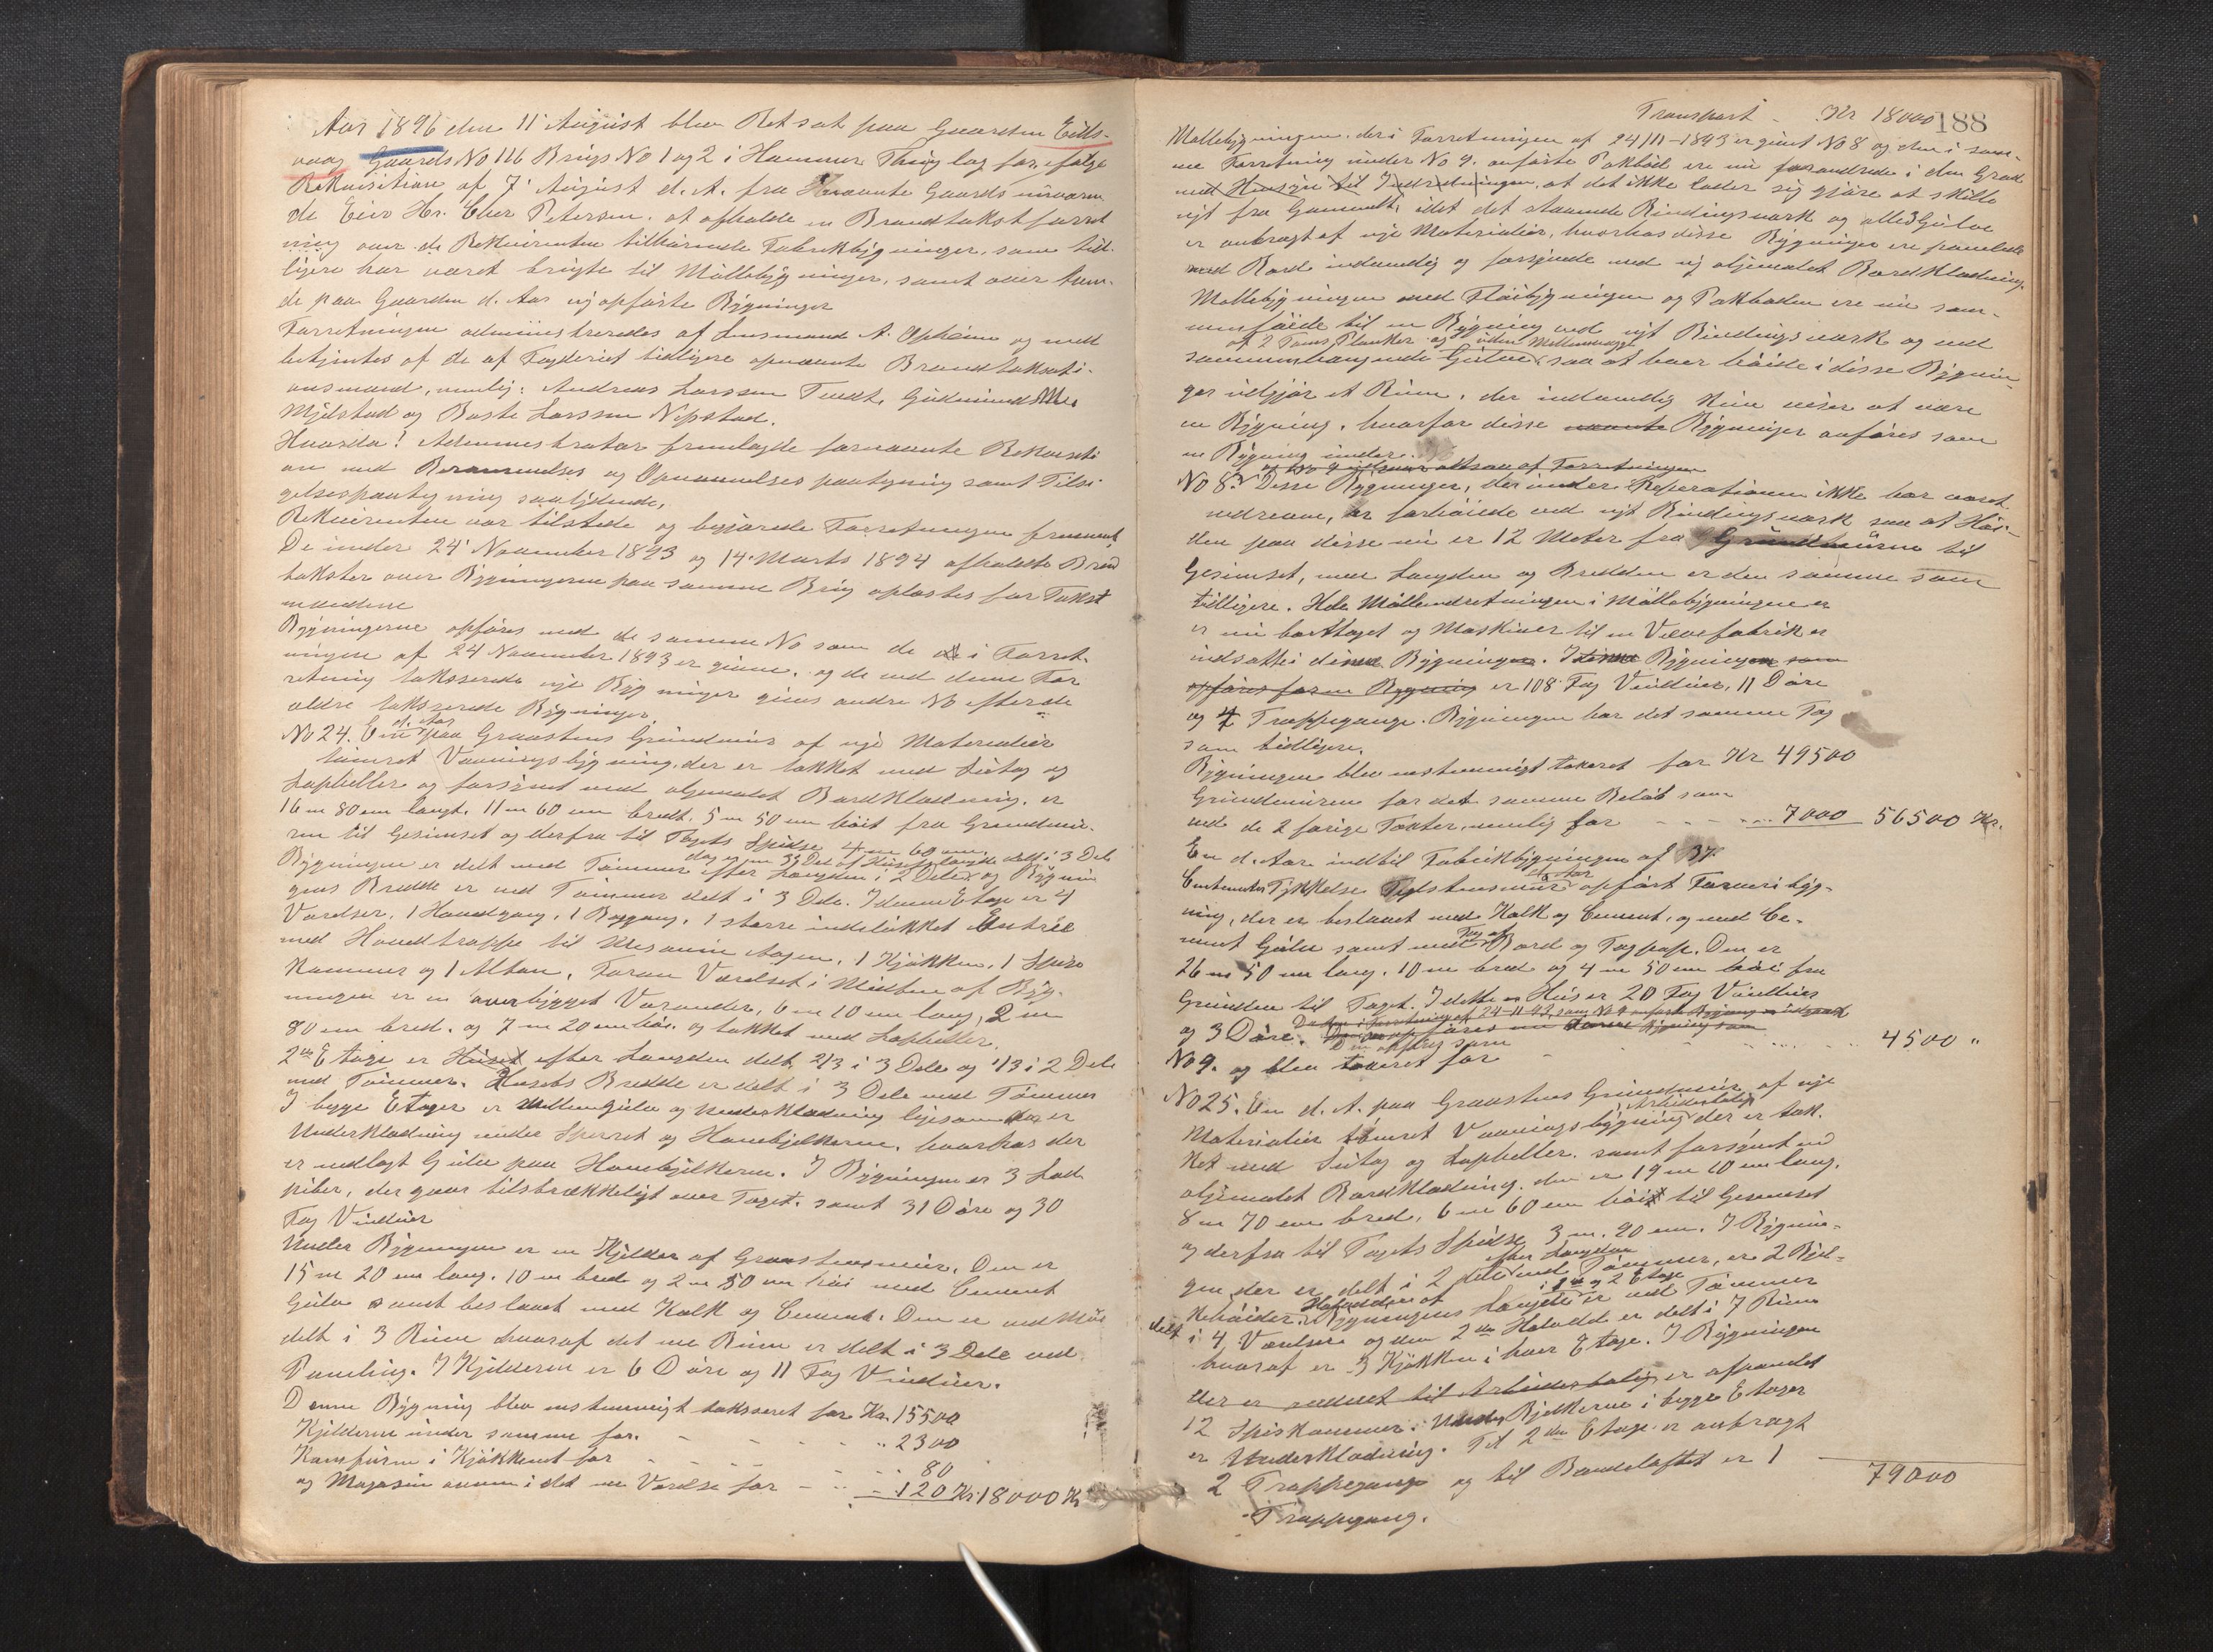 Aar 1896 den 11 August blev Ret sat paa Gaarden Eids-
vaag Gaards No 116 Brugs No 1 og 2 i Hammer Thinglag for, ifølge
Rekvisition af 7' August d. A. fra nævnte Gaards nuværen-
de Eier Hr. Cher Petersen. at afholde en Brandtakstforret
ning over de Rekvirenten tilhørende Fabrikbygninger, som tid-
ligere har været brugte til Møllebygninger, samt over
de paa Gaarden d. Aar nyopførte Bygninger
Forretningen administreredes af Lensmand A. Opheim og med
betjentes af de af Fogderiet tidligere opnævnte Brandtaksati-
onsmænd, nemlig: Andreas Larssen Tvedt, Gudmund
Mjelstad og Baste Larssen Nipstad.
Hvorda! Administrator fremlagde fornævnte Rekvisiti
on med Berammelses og Opnævnelses paategning samt Tilsi
gelsespaategning saalydende,
Rekvirenten var tilstede og begjærede Forretningen fremmet
De under 24' November 1893 og 14' Marts 1894 afholdte Brand
takster over Bygningerne paa samme Brug oplæstes for Takst
mændene
Bygningerne opføres med de samme No som de i Forret-
ningen af 24 November 1893 er givne, og de ved denne For
retning takserede nye Bygninger gives andre No efter de
ældre takserede Bygninger.
No 24. En d. Aar paa Graastens Grundmur af nye Materialier
tømret Vaaningsbygning, der er takket med Sutag og
Lapheller og forsynet med oljemalet Bordklædning, er
16 m 80 cm langt, 11 m 60 cm bredt, 5 m 50 cm høit fra Grundmu-
ren til Gesimset og derfra til Tagets Spidse 4 m 60 cm.
Bygningen er delt med Tømmer efter Længden i 2 Dele dog er en 1/3 Del af Husets længde delt i 3 Dele og Bygnin
gens Bredde er med Tømmer delt i 3 Dele. I denne Etage er 4
Værelser, 1 Hovedgang, 1 Baggang, 1 større indelukket Entrée
med Hovedtrappe til Mesanin Etagen, 1 Kjøkken, 1 Spise
Kammer og 1 Altan. Foran Værelset i Midten af Byg-
ningen er en overbygget Veranda, 6 m 10 cm lang, 2 m
80 cm bred, og 7 m 20 cm høi og takket med Lapheller.
2den Etage er Huset efter Længden delt 2/3 i 3 Dele og 1/3 i 2 Dele
med Tømmer. Husets Bredde er delt i 3 Dele med Tømmer
I begge Etager er Mellemgulv og Underklædning ligesom der er
Underklædning under Sperret og Hanebjelkerne, hvorhos der
er nedlagt Gulv paa Hanebjelkerne. I Bygningen er 3 Lad
piber, der gaar tilstrækkeligt over Taget, samt 31 Døre og 30
Fag Vinduer
Under Bygningen er en Kjelder af Graastensmur. Den er
15 m 20 cm lang, 10 m bred og 2 m 50 cm høi med Cement
Gulv samt beslaaet med Kalk og Cement. Den er ved Mur
delt i 3 Rum hvoraf det ene Rum er delt i 3 Dele ved
Paneling. I Kjelderen er 6 Døre og 11 Fag Vinduer.
Denne Bygning blev enstemmigt takseret for Kr. 15500
Kjelderen under samme for. - - - - " 2300
Kamfuren i Kjøkkenet for - - - - 80
og Magasin ovnen i det ene Værelse for - - - 120 Kr. 18000 Kr
188
Transport - Kr 18000
Møllebygningen, der i Forretningen af 24/11-1893 er givet No 8 og den i sam-
me Forretning under No 9. anførte Pakbod ere nu forandrede i den Grad
med Hensyn til Indredningen, at det ikke lader sig gjøre at skille
nyt fra Gammelt, idet det staaende Bindingsværk og alle Gulve
er anbragt af nye Materialier, hvorhos disse Bygninger ere panelede
med Bord indvendig og forsynede med ny oljemalet Bordklædning.
Møllebygningen med Fløibygningen og Pakboden ere nu sam-
menføide til en Bygning ved nyt Bindingsværk og med
af 2 Toms Planker og uden Mellemvægge
sammenhængende Gulve, saa at hver høide i disse Bygnin-
ger udgjør et Rum, der indvendig kun viser at være
en Bygning, hvorfor disse nævnte Bygninger anføres som
en Bygning under.
og No 9 udgaar altsaa af Forretningen
No 8. Disse Bygninger, der under Reperationen ikke har været
nedrevne, er forhøiede med nyt Bindingsværk saa at Høi-
den paa disse nu er 12 Meter fra Grundmuren til
Gesimset, men Længden og Bredden er den samme som
tidligere. Hele Mølleindretningen i Møllebygningen er
er nu borttaget og Maskiner til en Vævefabrik er
indsatte i denne Bygningen. I denne Bygningen som
opføres for en Bygning er 108 Fag Vinduer, 11 Døre
og 4 Trappegange. Bygningen har det samme Tag
som tidligere.
Bygningen blev enstemmigt taxeret for Kr 49500
Grundmuren for det samme Beløb som
ved de 2 forige Taxter, nemlig for - - - - 7000 56500 Kr.
En d. Aar indtil Fabrikbygningen af 37
Centimeter Tykkelse Teglstensmur d. Aar opført Farveribyg-
ning, der er beslaaet med Kalk og Cement, og med Ce-
ment Gulv samt med Tag af Bord og Tagpap. Den er
26 m 50 cm lang, 10 m bred og 4 m 50 cm høi fra
Grunden til Taget. I dette Hus er 20 Fag Vinduer
og 3 Døre. Den i Forretning af 24-11-93 som No 9 anførte Bygning er udgaaet
Den opføres som
No 9. og blev taxeret for - - - - 4500 "
No 25. En d. A. paa Graastens Grundmur af nye
Materialier tømret Vaaningsbygning Arbeiderbolig der er tak-
ket med Sutag og Lapheller, samt forsynet med
oljemalet Bordklædning, den er 19 m 10 cm lang,
8 m 70 cm bred, 6 m 60 cm høi til Gesimset
og derfra til Tagets Spidse 3 m. 90 cm. I Bygnin-
gen der er delt i 2 dele efter Længden med Tømmer, er 2 Bjel-
kehøider. Halvdelen af Bygningens Længde i 1ste og 2 Etage er med Tømmer
delt i 4 Værelser og den 2den Halvdel er delt i 7 Rum
hvoraf er 3 Kjøkken i hver Etage. I Bygningen
der er indredet til Arbeiderbolig er afpanelet
12 Spiskammer. Under Bjelkerne i begge Etager
er Underklædning. Til 2den Etage er anbragt
2 Trappegange og til Bandeloftet er 1
Trappegang.
79000